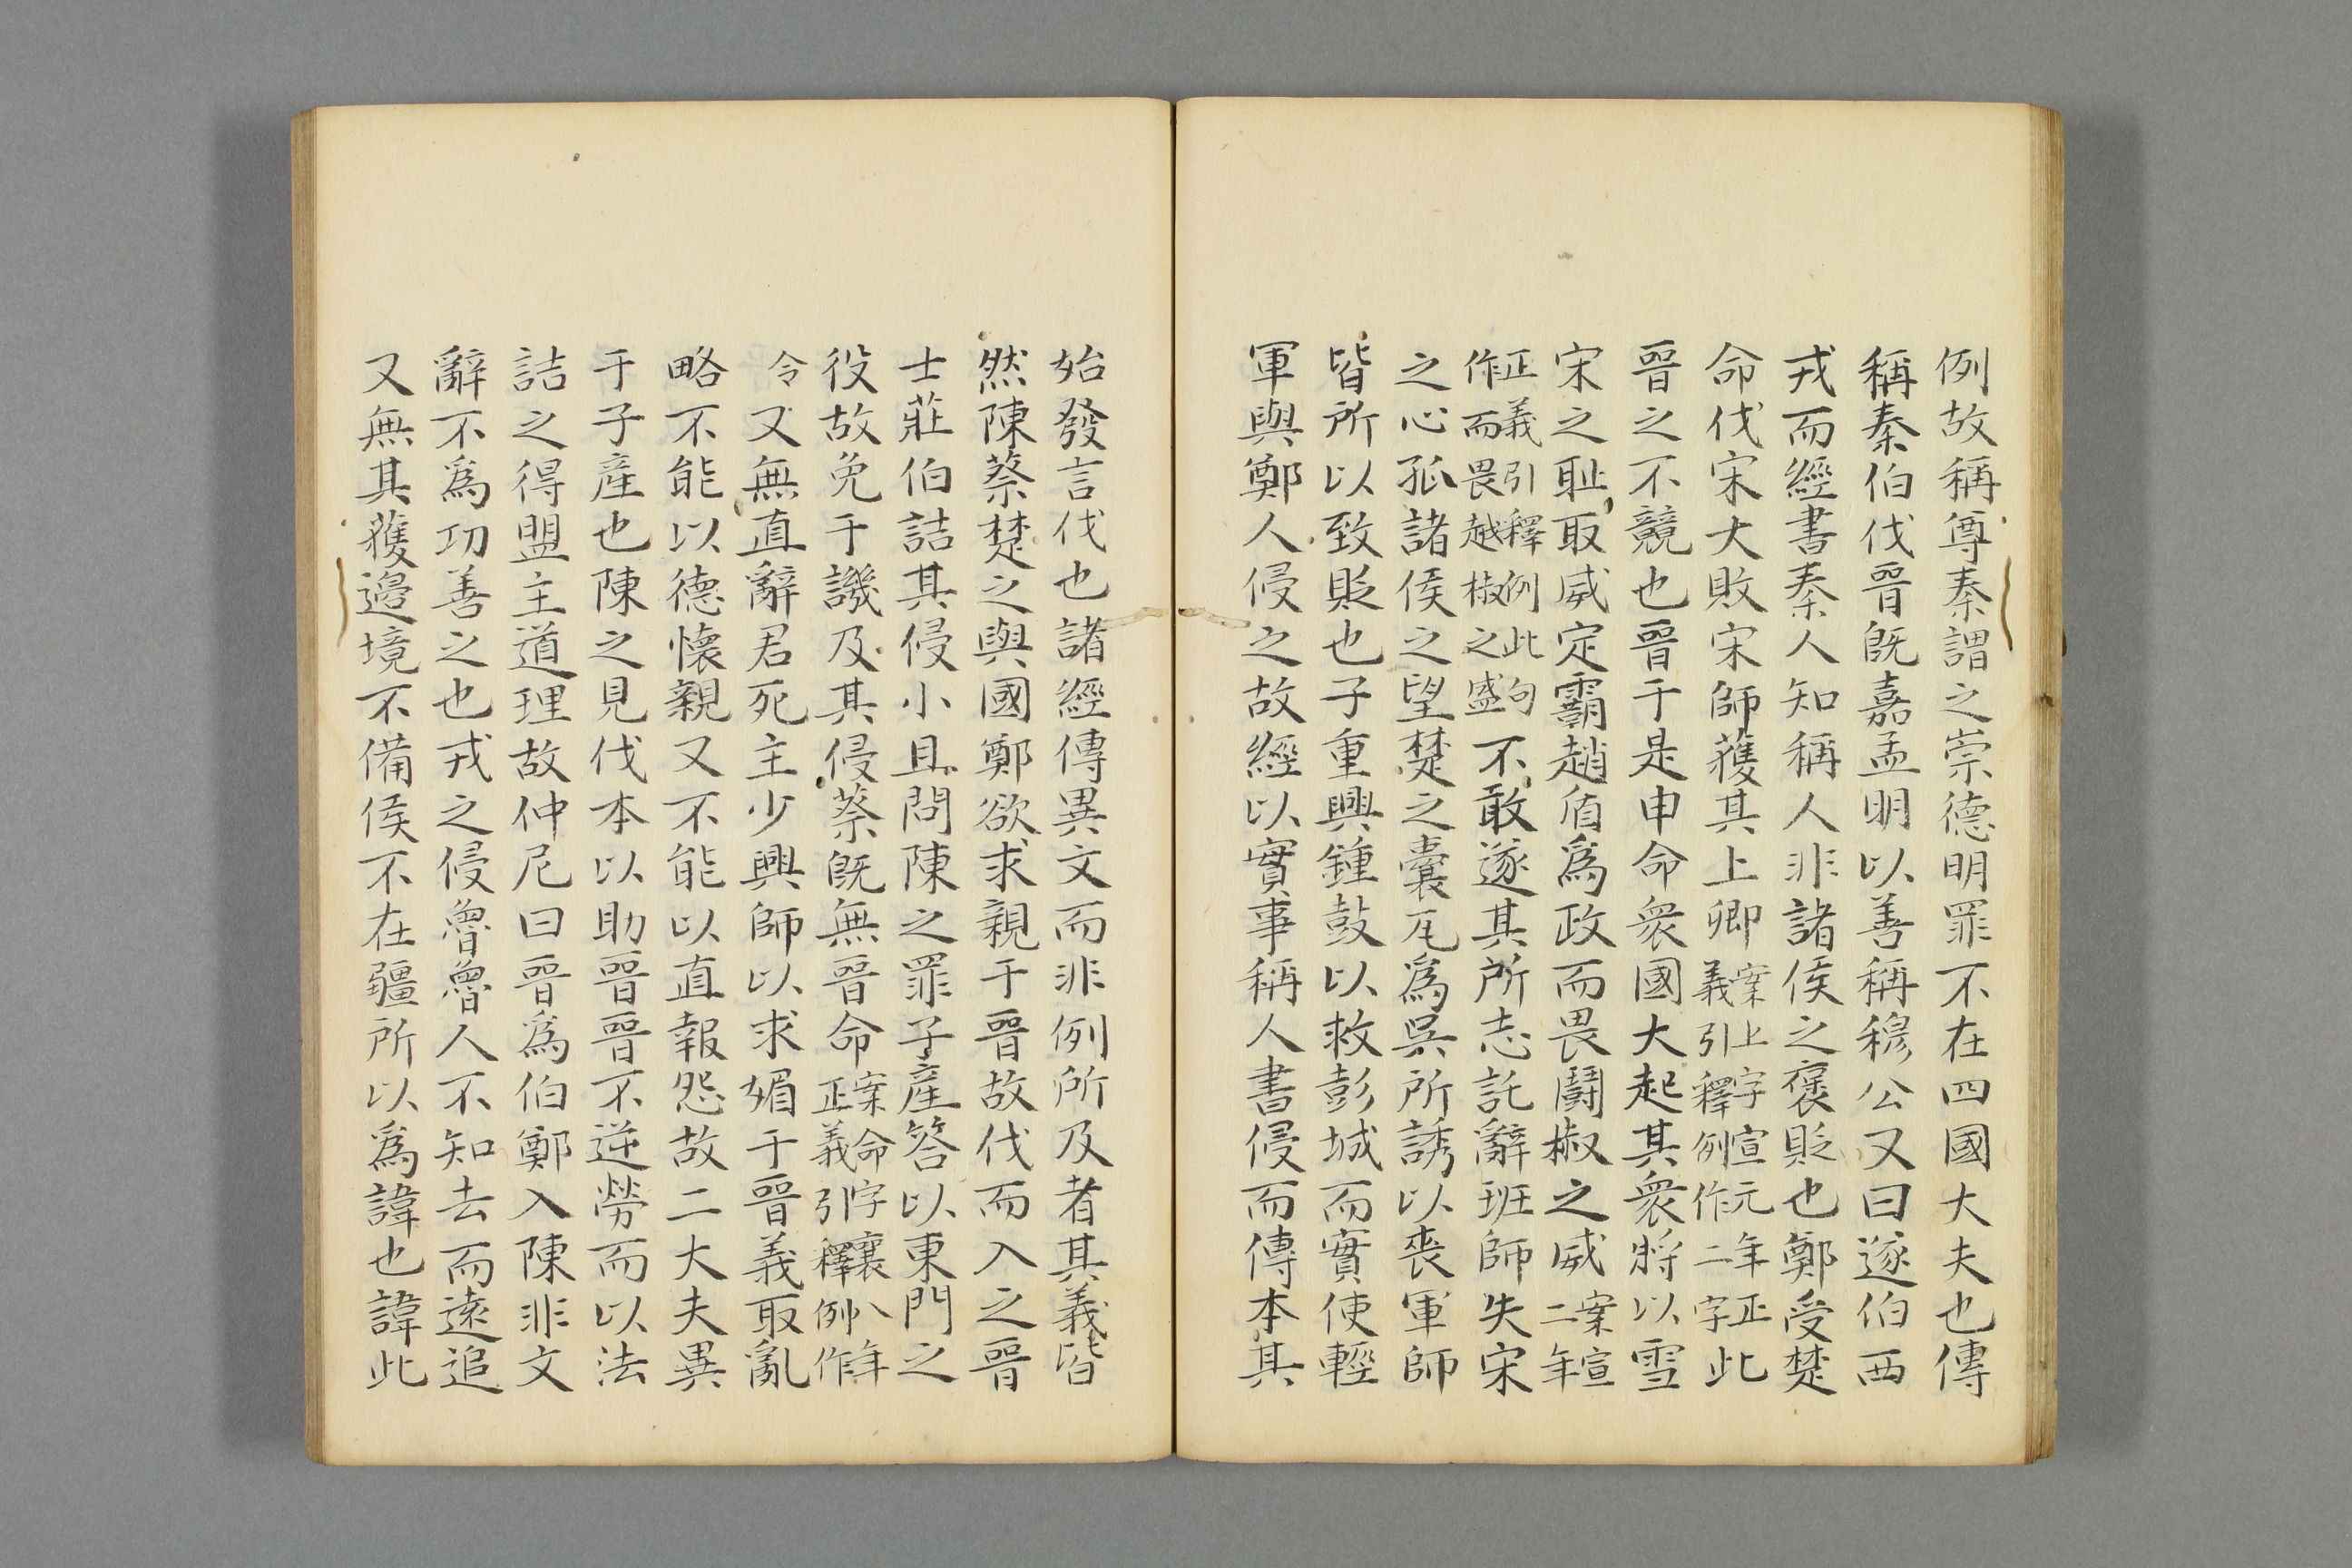 例故稱尊秦謂之崇德明罪不在四國大夫也傳
稱秦伯伐晉既嘉孟明以善稱穆公又曰遂伯西
戎而經書秦人知稱人非諸侯之褒貶也鄭受楚
命伐宋大敗宋師獲其上卿案上字宣元年正義引釋例作二字此
晉之不競也晉于是申命衆國大起其衆將以雪
宋之耻取威定霸趙盾爲政而畏鬬椒之威案宣二年
正義引釋例此句作而畏越椒之盛不敢遂其所志託辭班師失宋
之心孤諸侯之望楚之囊瓦爲吳所誘以喪軍師
皆所以致貶也子重興鍾鼓以救彭城而實使輕
軍與鄭人侵之故經以實事稱人書侵而傳本其
始發言伐也諸經傳異文而非例所及者其義皆
然陳蔡楚之與國鄭欲求親于晉故伐而入之晉
士莊伯詰其侵小且問陳之罪子產答以東門之
役故免于譏及其侵蔡既無晉命案命字襄八年正義引釋例作
令又無直辭君死主少興師以求媚于晉義取亂
略不能以德懷親又不能以直報怨故二大夫異
于子產也陳之見伐本以助晉晉不逆勞而以法
詰之得盟主道理故仲尼曰晉爲伯鄭入陳非文
辭不爲功善之也戎之侵魯魯人不知去而遠追
又無其獲邊境不備侯不在疆所以爲諱也諱此